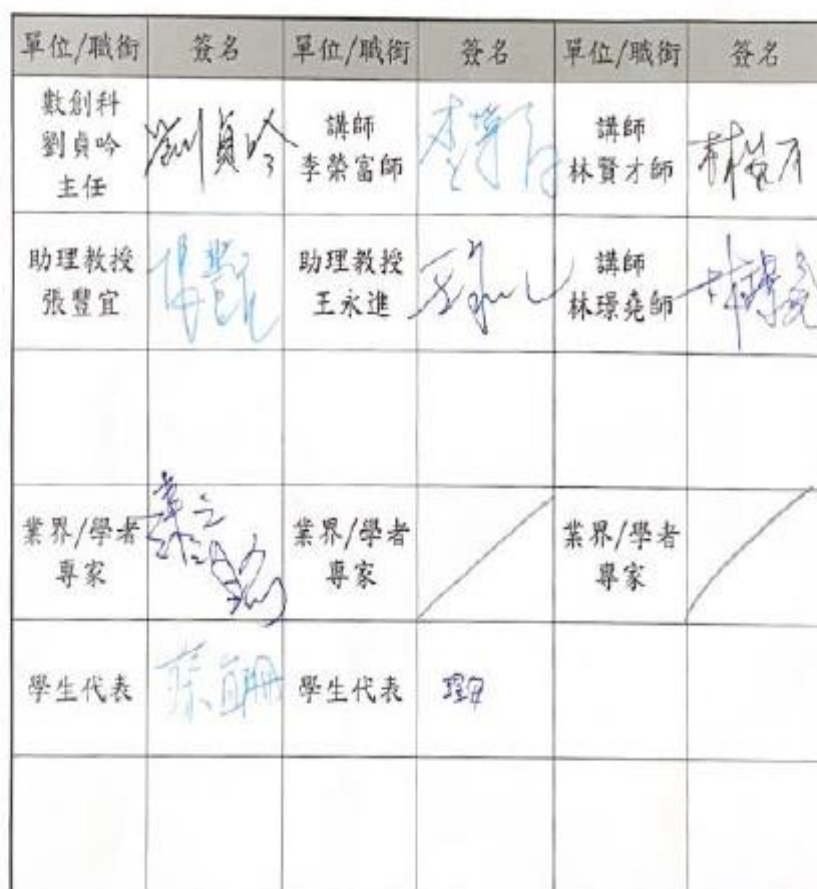 單位/職銜 簽名 單位/職銜 簽名 單位/職銜 簽名
數創科
劉貞吟
主任
劉貞吟
講師
李榮富師
李榮富
講師
林賢才師
助理教授
張豐宜
助理教授
王永進
講師
林璟堯師
業界/學者
專家
業界/學者
專家
業界/學者
專家
學生代表
學生代表